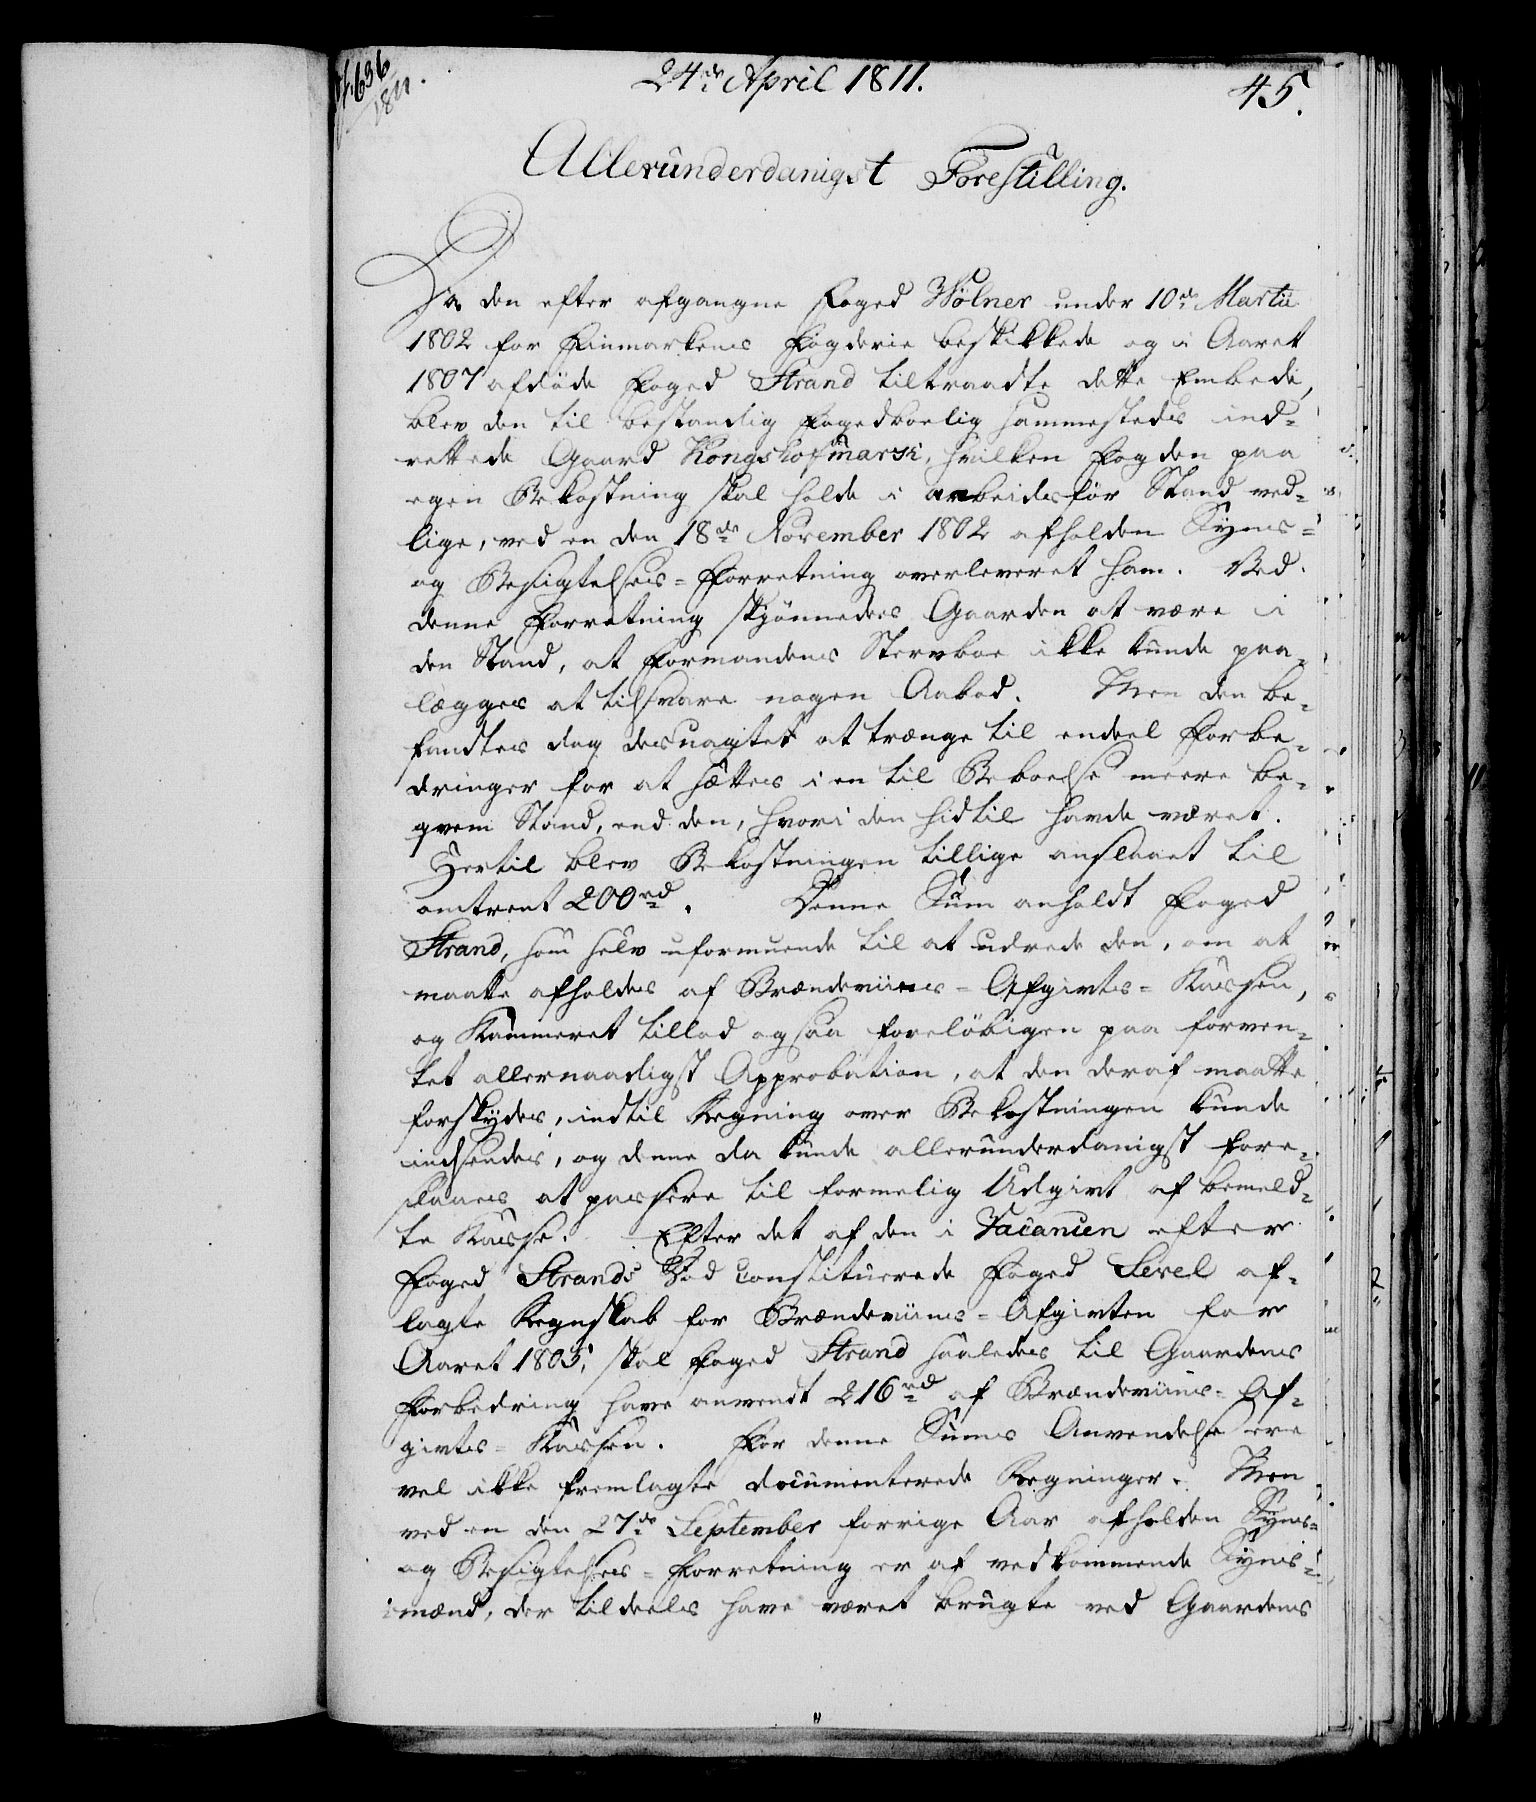 636
1811.
24de April 1811.
45.
Allerunderdanigst Forestilling.
Da den efter afgangne Foged Wölner under 10de Martii
1802 for Finmarkens Fogderie beskikkede og i Aaret
1807 afdöde Foged Strand tiltraadte dette Embede,
blev den til bestandig Fogedboelig sammesteds ind-
rettede Gaard Kongshofmark, hvilken Fogden paa
egen Bekostning skal holde i arbeidsför Stand ved-
lige, ved en den 18de November 1802 afholden Syns-
og Besigtelses-Forretning overleveret ham. Ved
denne Forretning skjönnedes Gaarden at være i
den Stand, at Formandens Stervboe ikke kunde paa-
lægges at tilsvare nogen Aabod. Men den be-
fandtes dog desuagtet at trænge til endeel Forbe-
dringer for at sættes i en til Beboelse meere be-
qvem Stand, end den, hvori den hidtil havde været.
Hertil blev Bekostningen tillige anslaaet til
omtrent 200rd. Denne Sum anholdt Foged
Strand, som selv uformuende til at udrede den, om at
maatte afholdes af Brændeviins-Afgivts-Kassen,
og Kammeret tillod ogsaa foreløbigen paa forven-
tet allernaadigst Approbation, at den deraf maatte
forskydes, indtil Regning over Bekostningen kunde
indsendes, og denne da kunde allerunderdanigst fore-
slaaes at passere til formelig Udgivt af bemeld-
te Kasse. Efter det af den i Vacancen efter
Foged Strands Död constituerede Foged Sevel af-
lagte Regnskab for Brændeviins-Afgivten for
Aaret 1805, skal Foged Strand saaledes til Gaardens
Forbedring have anvendt 216rd af Brændeviins-Af-
givts-Kassen. For denne Sums Anvendelse ere
vel ikke fremlagte documenterede Regninger. Men
ved en den 27de September forrige Aar afholden Syns-
og Besigtelses-Forretning er af vedkommende Syns-
mænd, der tildeels have været brugte ved Gaardens